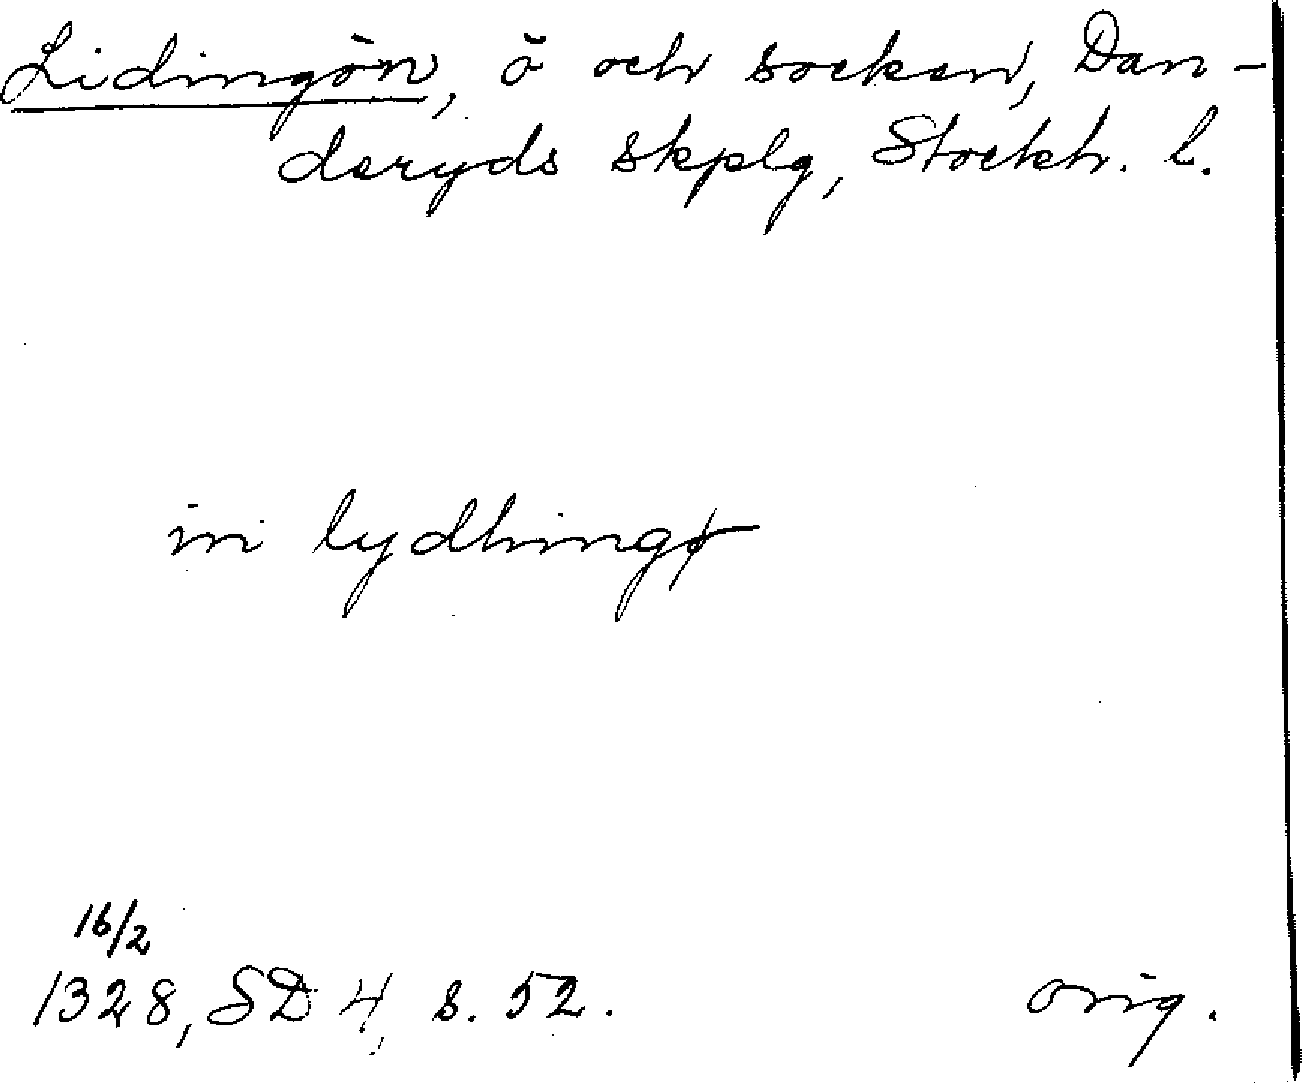 Lidingön, ö och socken, Dan-
deryds skplg, Stockh. l.
in lydhingø
16/2
1328, SD 4, s. 52.
orig.